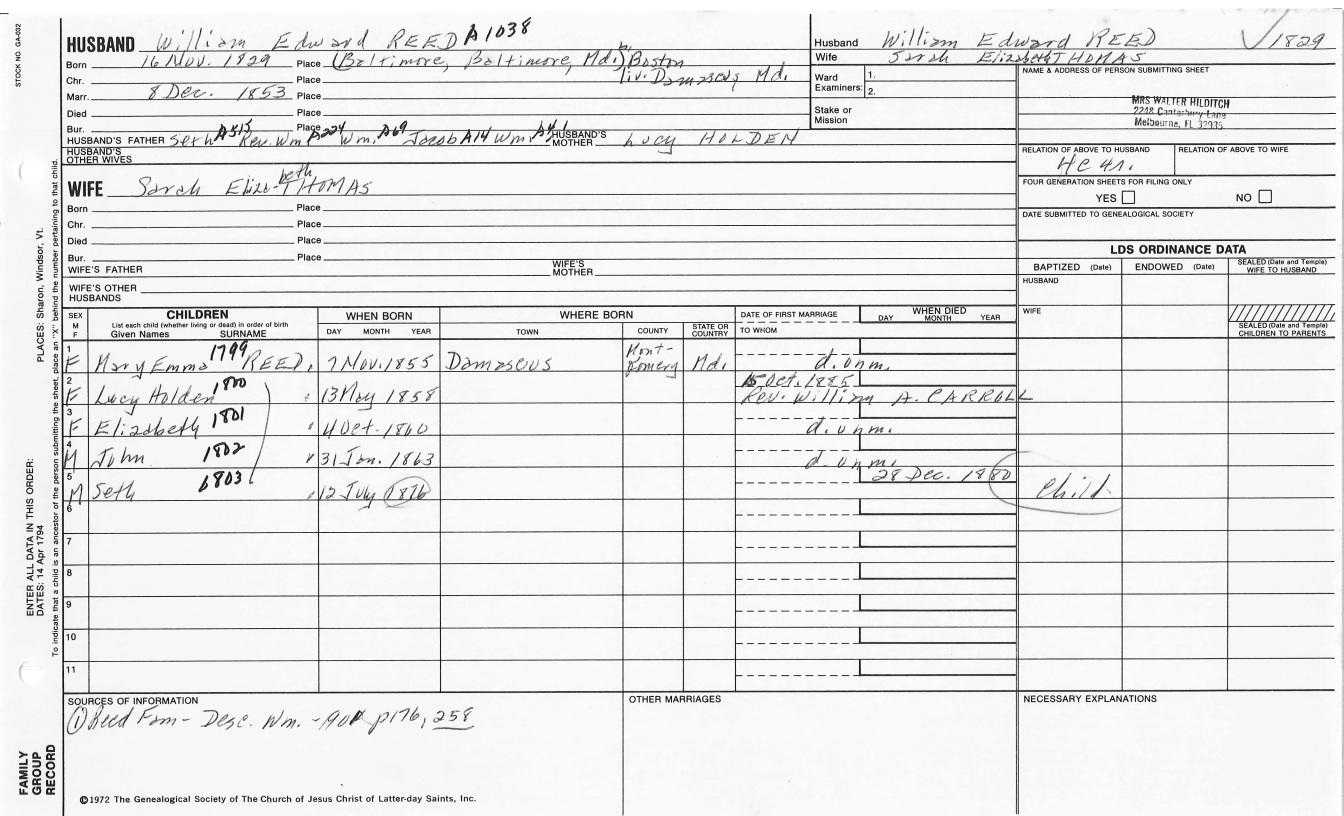 STOCK NO. GA-032
HUSBAND William Edward REED A1038
Born 16 Nov. 1829 Place (Baltimore, Baltimore, Md.) b. Boston
Chr. Place liv. Damascus Md.
Marr. 8 Dec. 1853 Place
Died Place
Bur. Place
HUSBAND'S FATHER Seth A515 Rev. Wm A224 Wm. A69 Jacob A14 Wm. A4 HUSBAND'S MOTHER Lucy HOLDEN
HUSBAND'S OTHER WIVES
WIFE Sarah Elizabeth THOMAS
Born Place
Chr. Place
Died Place
Bur. Place
WIFE'S FATHER WIFE'S MOTHER
WIFE'S OTHER HUSBANDS
Husband William Edward REED 1829
Wife Sarah Elizabeth THOMAS
Ward Examiners: 1.
2.
Stake or Mission
NAME & ADDRESS OF PERSON SUBMITTING SHEET
MRS WALTER HILDITCH
2248 Canterbury Lane
Melbourne, FL 32935
RELATION OF ABOVE TO HUSBAND RELATION OF ABOVE TO WIFE
FOUR GENERATION SHEETS FOR FILING ONLY
YES NO
DATE SUBMITTED TO GENEALOGICAL SOCIETY
LDS ORDINANCE DATA
BAPTIZED (Date) ENDOWED (Date) SEALED (Date and Temple) WIFE TO HUSBAND
HUSBAND
WIFE
SEALED (Date and Temple) CHILDREN TO PARENTS
SEX M F CHILDREN WHEN BORN WHERE BORN DATE OF FIRST MARRIAGE WHEN DIED
List each child (whether living or dead) in order of birth
Given Names SURNAME DAY MONTH YEAR TOWN COUNTY STATE OR COUNTRY TO WHOM DAY MONTH YEAR
1 F Mary Emma 1799 REED, 7 Nov. 1855 Damascus Montgomery Md. d. unm.
2 F Lucy Holden 1800 " 13 May 1858 15 Oct. 1885 Rev. William A. CARROLL
3 F Elizabeth 1801 " 4 Oct. 1860 d. unm.
4 M John 1802 " 31 Jan. 1863 d. unm.
5 M Seth 1803 " 12 July 1876 28 Dec. 1880 Child
6
7
8
9
10
11
SOURCES OF INFORMATION
① Reed Fam - Desc. Wm. - p176, 258
OTHER MARRIAGES
NECESSARY EXPLANATIONS
©1972 The Genealogical Society of The Church of Jesus Christ of Latter-day Saints, Inc.
FAMILY GROUP RECORD
ENTER ALL DATA IN THIS ORDER:
DATES: 14 Apr 1794
PLACES: Sharon, Windsor, Vt.
To indicate that a child is an ancestor of the person submitting the sheet, place an "X" behind the number pertaining to that child.